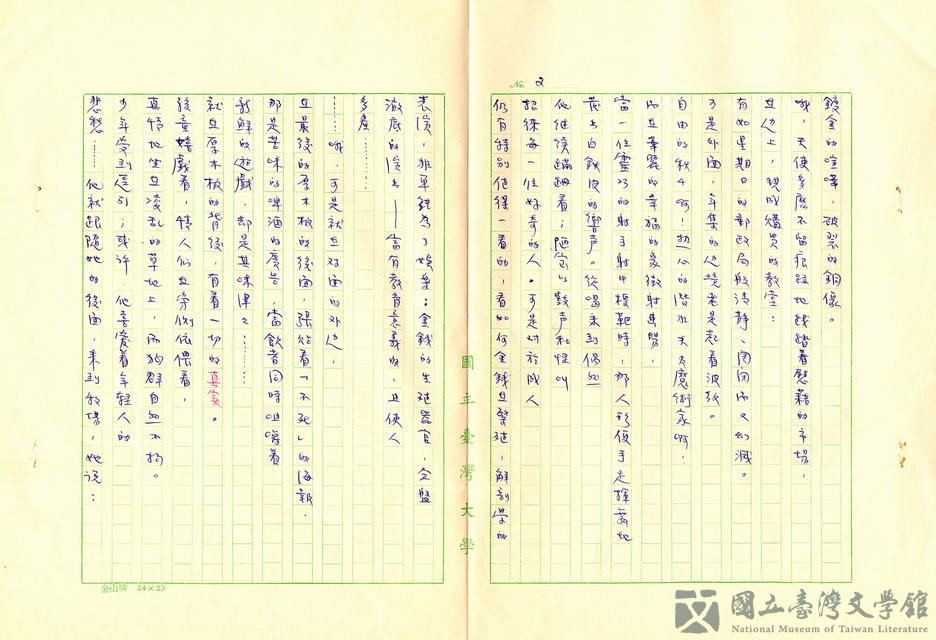 No. 2
鍍金的喧嘩,破裂的銅像。
哦,天使多麽不留痕跡地踐踏着慰藉的市場,
旦边上,現成購買的教堂:
有如星期日的郵政局般清静、関闭而又幻滅。
可是外面,年集的边境老是起着波紋。
自由的秋千啊!热心的潜水夫及魔術家啊!
而且華麗的幸福的象徵射击場,
當一位靈巧的射手射中模靶時,那人形便手足揮舞地
發出白鉄皮的響声。從喝采到偶然
他继續蹒跚着;陋室以鼓声和怪叫
招徠每一位好奇的人。可是対於成人
仍有特别值得一看的,看如何金錢旦繁殖,解剖學的
表演,非單純為了娛樂:金錢的生殖器官,全盤
澈底的演出——富有教育意義及,且使人
多産……
……哦,可是就旦対面的外边,
旦最後的厚木板的後面,張貼着「不死」的海報,
那是苦味的啤酒的廣告,當飲者同時咀嚼着
新鮮的遊戲,却是其味津々……
就旦厚木板的背後,有着一切的真实。
孩童嬉戲着,情人们旦旁侧依偎着,
真情地坐旦凌乱的草地上,而狗群自然不拘。
少年受到牽引;或許,他喜愛着年轻人的
悲愁……他就跟随她的後面,来到牧場,她说:
國立臺灣大學
金山牌 24×25
國立臺灣文學館
National Museum of Taiwan Literature